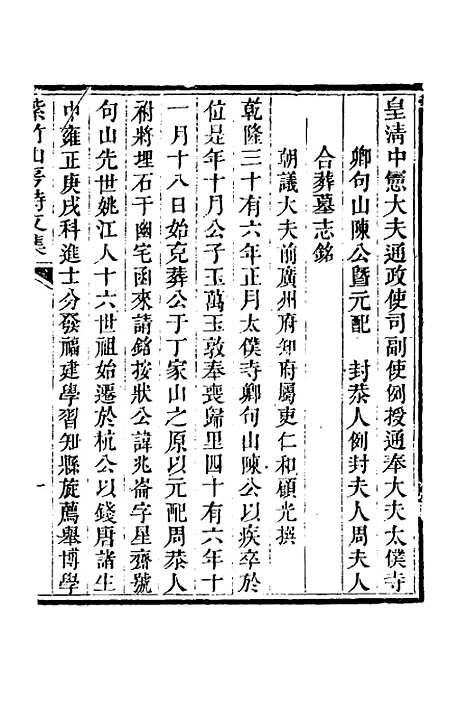 皇清中憲大夫通政使司副使例授通奉大夫太僕寺
卿句山陳公暨元配　封恭人例封夫人周夫人
合葬墓志銘
朝議大夫前廣州府知府屬吏仁和顧光撰
乾隆三十有六年正月太僕寺卿句山陳公以疾卒於
位是年十月公子玉萬玉敦奉喪歸里四十有六年十
一月十八日始克葬公于丁家山之原以元配周恭人
祔將埋石于幽宅函來請銘按狀公諱兆崙字星齋號
句山先世姚江人十六世祖始遷於杭公以錢唐諸生
中雍正庚戌科進士分發福建學習知縣旋薦舉博學
紫竹山房詩文集
一